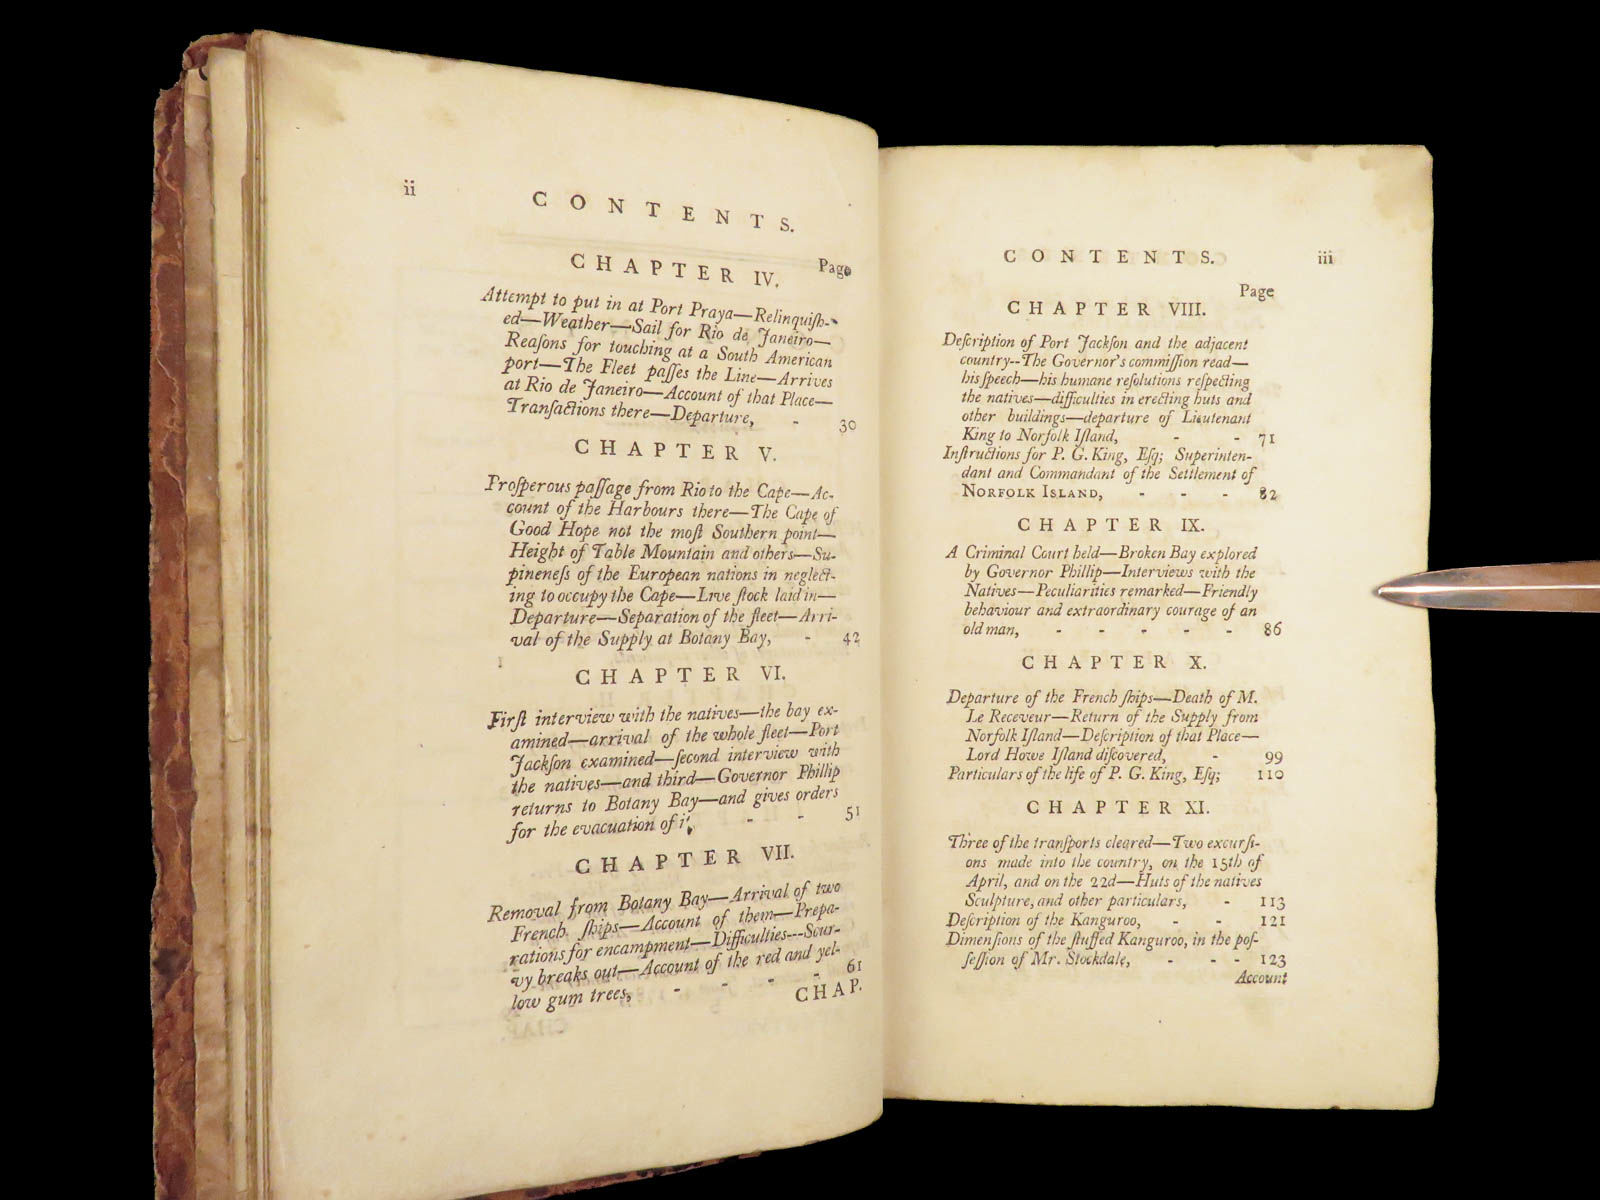 ii
CONTENTS.
Page
CHAPTER IV.
Attempt to put in at Port Praya—Relinquiſh-
ed—Weather—Sail for Rio de Janeiro—
Reaſons for touching at a South American
port—The Fleet paſſes the Line—Arrives
at Rio de Janeiro—Account of that Place—
Tranſactions there—Departure, - 30
CHAPTER V.
Proſperous paſſage from Rio to the Cape—Ac-
count of the Harbours there—The Cape of
Good Hope not the moſt Southern point—
Height of Table Mountain and others—Su-
pineneſs of the European nations in neglect-
ing to occupy the Cape—Live ſtock laid in—
Departure—Separation of the fleet—Arri-
val of the Supply at Botany Bay, - 42
CHAPTER VI.
Firſt interview with the natives—the bay ex-
amined—arrival of the whole fleet—Port
Jackſon examined—ſecond interview with
the natives—and third—Governor Phillip
returns to Botany Bay—and gives orders
for the evacuation of it, - - 51
CHAPTER VII.
Removal from Botany Bay—Arrival of two
French ſhips—Account of them—Prepa-
rations for encampment—Difficulties---Scur-
vy breaks out—Account of the red and yel-
low gum trees, - - - - 61
CHAP.
CONTENTS. iii
Page
CHAPTER VIII.
Deſcription of Port Jackſon and the adjacent
country--The Governor's commiſſion read—
his ſpeech—his humane reſolutions reſpecting
the natives—difficulties in erecting huts and
other buildings—departure of Lieutenant
King to Norfolk Iſland, - - 71
Inſtructions for P. G. King, Eſq; Superinten-
dant and Commandant of the Settlement of
NORFOLK ISLAND, - - - 82
CHAPTER IX.
A Criminal Court held—Broken Bay explored
by Governor Phillip—Interviews with the
Natives—Peculiarities remarked—Friendly
behaviour and extraordinary courage of an
old man, - - - - - 86
CHAPTER X.
Departure of the French ſhips—Death of M.
Le Receveur—Return of the Supply from
Norfolk Iſland—Deſcription of that Place—
Lord Howe Iſland diſcovered, - 99
Particulars of the life of P. G. King, Eſq; 110
CHAPTER XI.
Three of the tranſports cleared—Two excurſi-
ons made into the country, on the 15th of
April, and on the 22d—Huts of the natives
Sculpture, and other particulars, - 113
Deſcription of the Kanguroo, - - 121
Dimenſions of the ſtuffed Kanguroo, in the poſ-
ſeſſion of Mr. Stockdale, - - - 123
Account